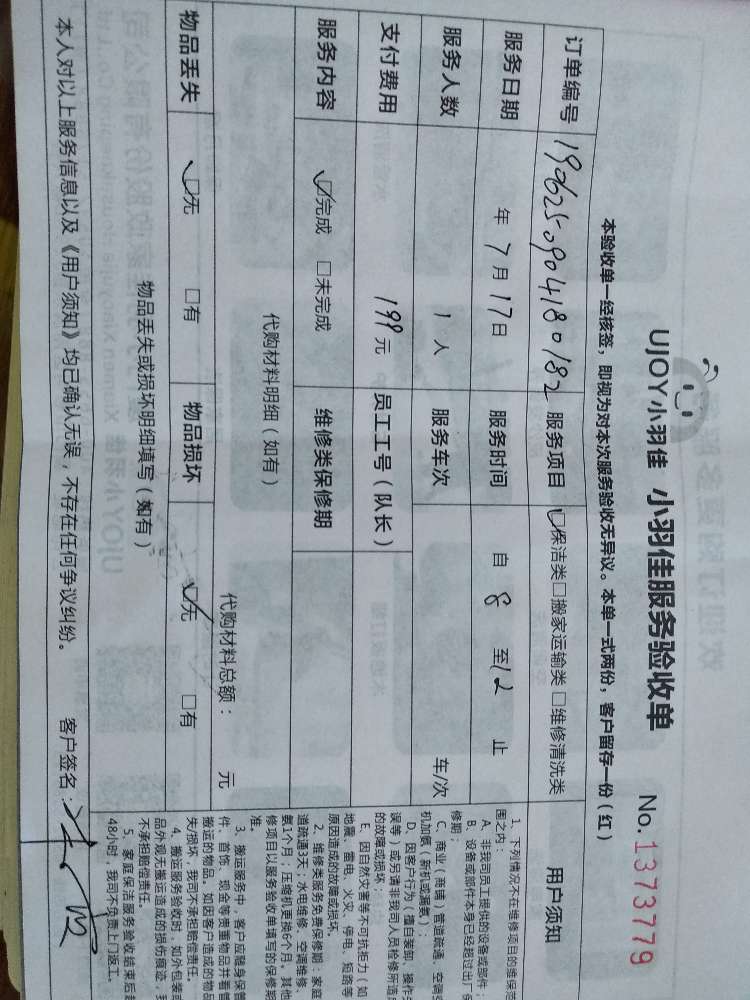 UJOY小羽佳 小羽佳服务验收单 No.1373779
本验收单一经核签，即视为对本次服务验收无异议。本单一式两份，客户留存一份（红）
订单编号 190625090418 0182 服务项目 ☑保洁类□搬家运输类□维修清洗类
服务日期 年 7 月 17 日 服务时间 自 8 至 12 止
服务人数 1 人 服务车次 车/次
支付费用 199 元 员工工号（队长）
服务内容 ☑完成 □未完成 维修类保修期
代购材料明细（如有）
代购材料总额： 元
物品丢失 ☑无 □有 物品损坏 ☑无 □有
物品丢失或损坏明细填写（如有）
本人对以上服务信息以及《用户须知》均已确认无误，不存在任何争议纠纷。 客户签名：
用户须知
1、下列情况不在维修项目的维保范
围之内：
A、非我司员工提供的设备或部件；
B、设备或部件本身已经超过出厂保
修期；
C、商业（商铺）管道疏通、空调安
机加氨（新机或漏氨）；
D、因客户行为（擅自装卸、操作失
误等）或另请非我司人员检修所造成
的故障或损坏
E、因自然灾害等不可抗拒力（如
地震、雷电、火灾、停电、短路等
原因造成的故障或损坏。
2、维修类服务免费保修期：家庭
道疏通3天；水电维修、空调维修、
氨1个月；压缩机更换6个月。其他
修项目以服务验收单填写的保修期
准。
3、搬运服务中，客户应随身保管
件、首饰、现金等贵重物品并看管
搬运的物品。如因客户造成的物品
失/损坏，我司不承担赔偿责任。
4、搬运服务验收时，如外包装或
品外观无搬运造成的损伤痕迹，我
不承担赔偿责任。
5、家庭保洁服务验收结束后超
48小时，我司不负责上门返工。